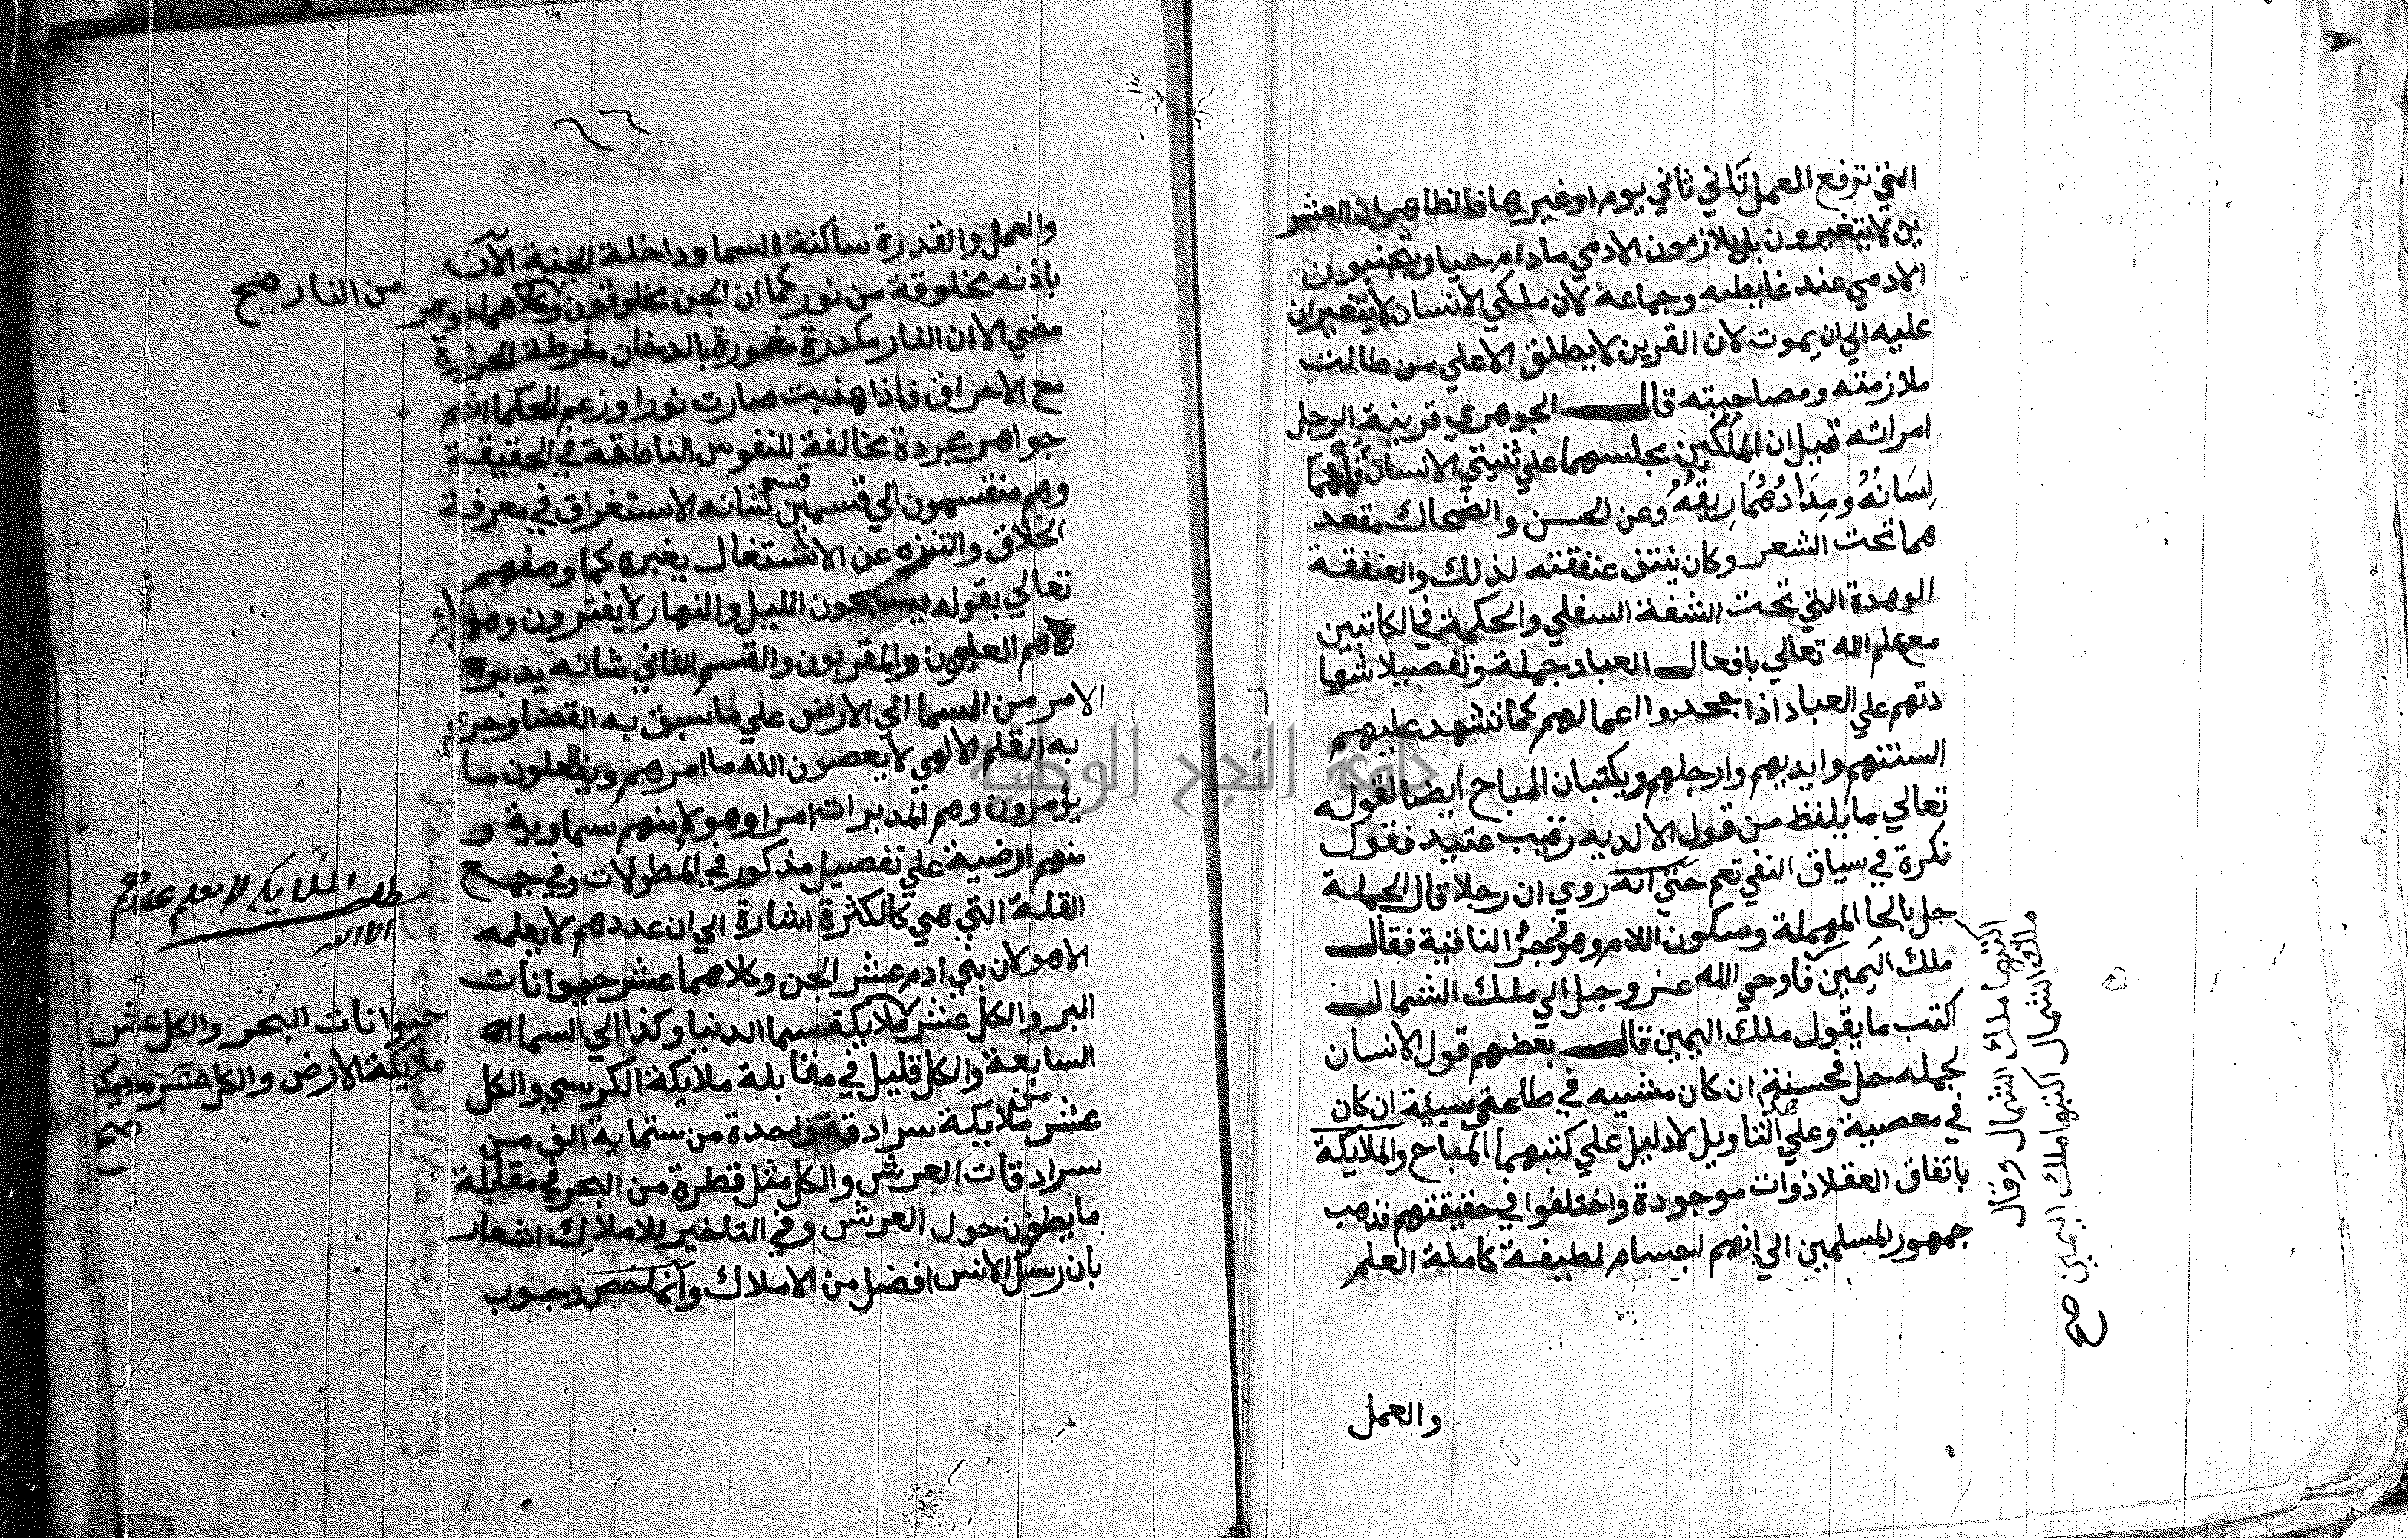 التي ترفع العمل تاني ثاني يوم او غيرها فالظاهر ان العشر
ين لا يتغيرون بل يلازمون الادمي مادام حيا ويجتنبون
الادمي عند غايطه وجماعة لان ملكي الانسان لا يتغيران
عليه الي ان يموت لان القرين لا يطلق الا علي من طالت
ملازمته ومصاحبته قال الجوهري قرينة الرجل
امراته قيل ان الملكين مجلسهما علي ثنيتي الانسان قلمهما
لِسَانُهُ ومِدَادُهُمَا رِيقُهُ وعن الحسن والضحاك مقعد
هما تحت الشعر وكان ينتف عنفقته لذلك والعنفقة
الوهدة التي تحت الشفة السفلي والحكمة في الكاتبين
مع علم الله تعالي بافعال العباد جملة وتفصيلا شها
دتهم علي العباد اذا جحدوا اعمالهم كما تشهد عليهم
السنتهم وايديهم وارجلهم ويكتبان المباح ايضا لقوله
تعالي ما يلفظ من قول الا لديه رقيب عتيد فقول
نكرة في سياق النفي تعم حتي انه روي ان رجلا قال لجمله
حل بالحا المهملة وسكون اللام وهو زجر الناقة فقال
ملك اليمين فاوحي الله عز وجل الي ملك الشمال
اكتب ما يقول ملك اليمين قال بعضهم قول الانسان
لجمله حل فحسنة ان كان مشيه في طاعة وسيئة ان كان
في معصية وعلي هذا التاويل لا دليل علي كتبهما المباح والملايكة
باتفاق العقلا ذوات موجودة واختلفوا في حقيقتهم فذهب
جمهور المسلمين الي انهم اجسام لطيفة كاملة العلم
اكتبها ملك الشمال وقال
ملك الشمال اكتبها ملك اليمين صح
والعمل
٢٦
والعمل والقدرة ساكنة السما وداخلة الجنة الآن
باذنه مخلوقة من نور كما ان الجن مخلوقون وكلاهما جوهر
من النار صح
مضي الا ان النار مكدرة مغمورة بالدخان مفرطة الحرارة
مع الاحراق فاذا هذبت صارت نورا وزعم الحكما انهم
جواهر مجردة مخالفة للنفوس الناطقة في الحقيقة
وهم منقسمون الي قسمين قسم شانه الاستغراق في معرفة
الخلاق والتنزه عن الاشتغال بغيره كما وصفهم
تعالي بقوله يسبحون الليل والنهار لا يفترون وهو
هم العليون والمقربون والقسم الثاني شانه يدبر
الامر من السما الي الارض علي ما سبق به القضا وجري
به القلم الالهي لا يعصون الله ما امرهم ويفعلون ما
يؤمرون وهم المدبرات امرا وهولا منهم سماوية و
منهم ارضية علي تفصيل مذكور في المطولات وفي جمع
القلة التي هي كالكثرة اشارة الي ان عددهم لا يعلمه
الا هو لان بني ادم عشر الجن وكلاهما عشر حيوانات
البر والكل عشر ملايكة سما الدنيا وكذا الي السما
السابعة والكل قليل في مقابلة ملايكة الكرسي والكل
عشر ملايكة سرادقة واحدة من ستماية الف من
سرادقات العرش والكل مثل قطرة من البحر في مقابلة
ما يطوفون حول العرش وفي التاخير للاملاك اشعار
بان رسل الانس افضل من الاملاك وانما خص وجوب
الملايكة لا يعلم عددهم
الا الله
حيوانات البحر والكل عشر
ملايكة الارض والكل عشر ملايكة
صح